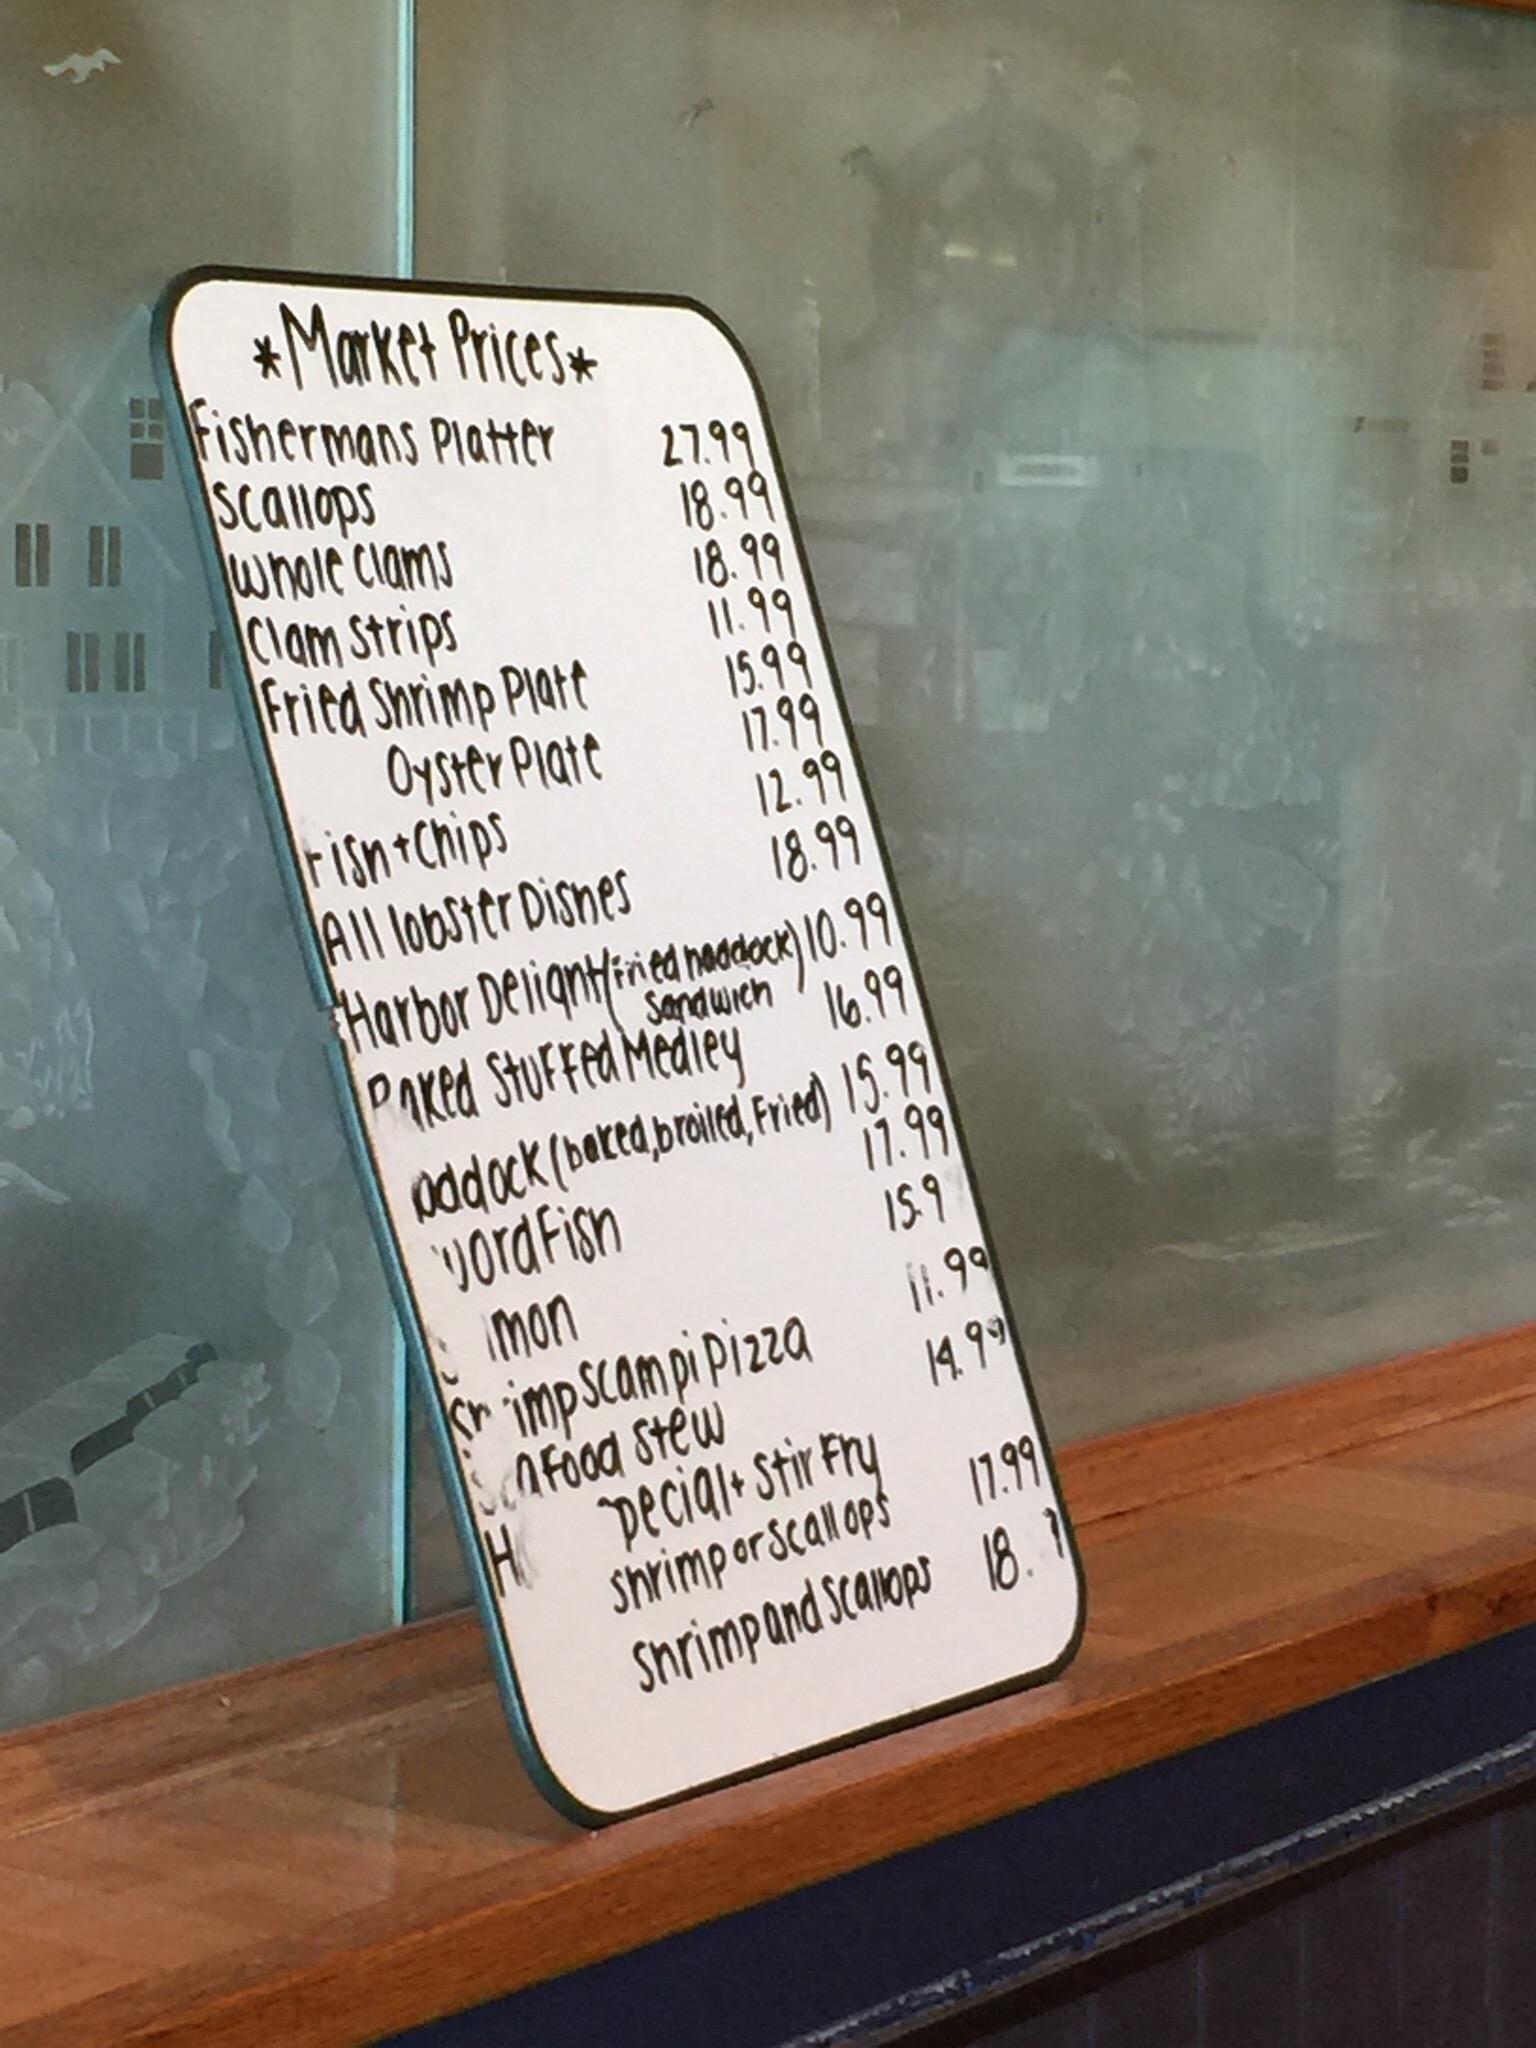 *Market Prices*
Fishermans Platter 27.99
Scallops 18.99
Whole Clams 18.99
Clam Strips 11.99
Fried Shrimp Plate 15.99
Oyster Plate 17.99
Fish + Chips 12.99
All lobster Dishes 18.99
Harbor Delight (fried haddock) 10.99
sandwich
Baked Stuffed Medley 16.99
addock (baked, broiled, Fried) 15.99
wordFish 17.99
mon 15.9
Shrimp scampi pizza 11.99
SeaFood stew 14.99
H pecial + Stir Fry
shrimp or scallops 17.99
shrimp and scallops 18. 9